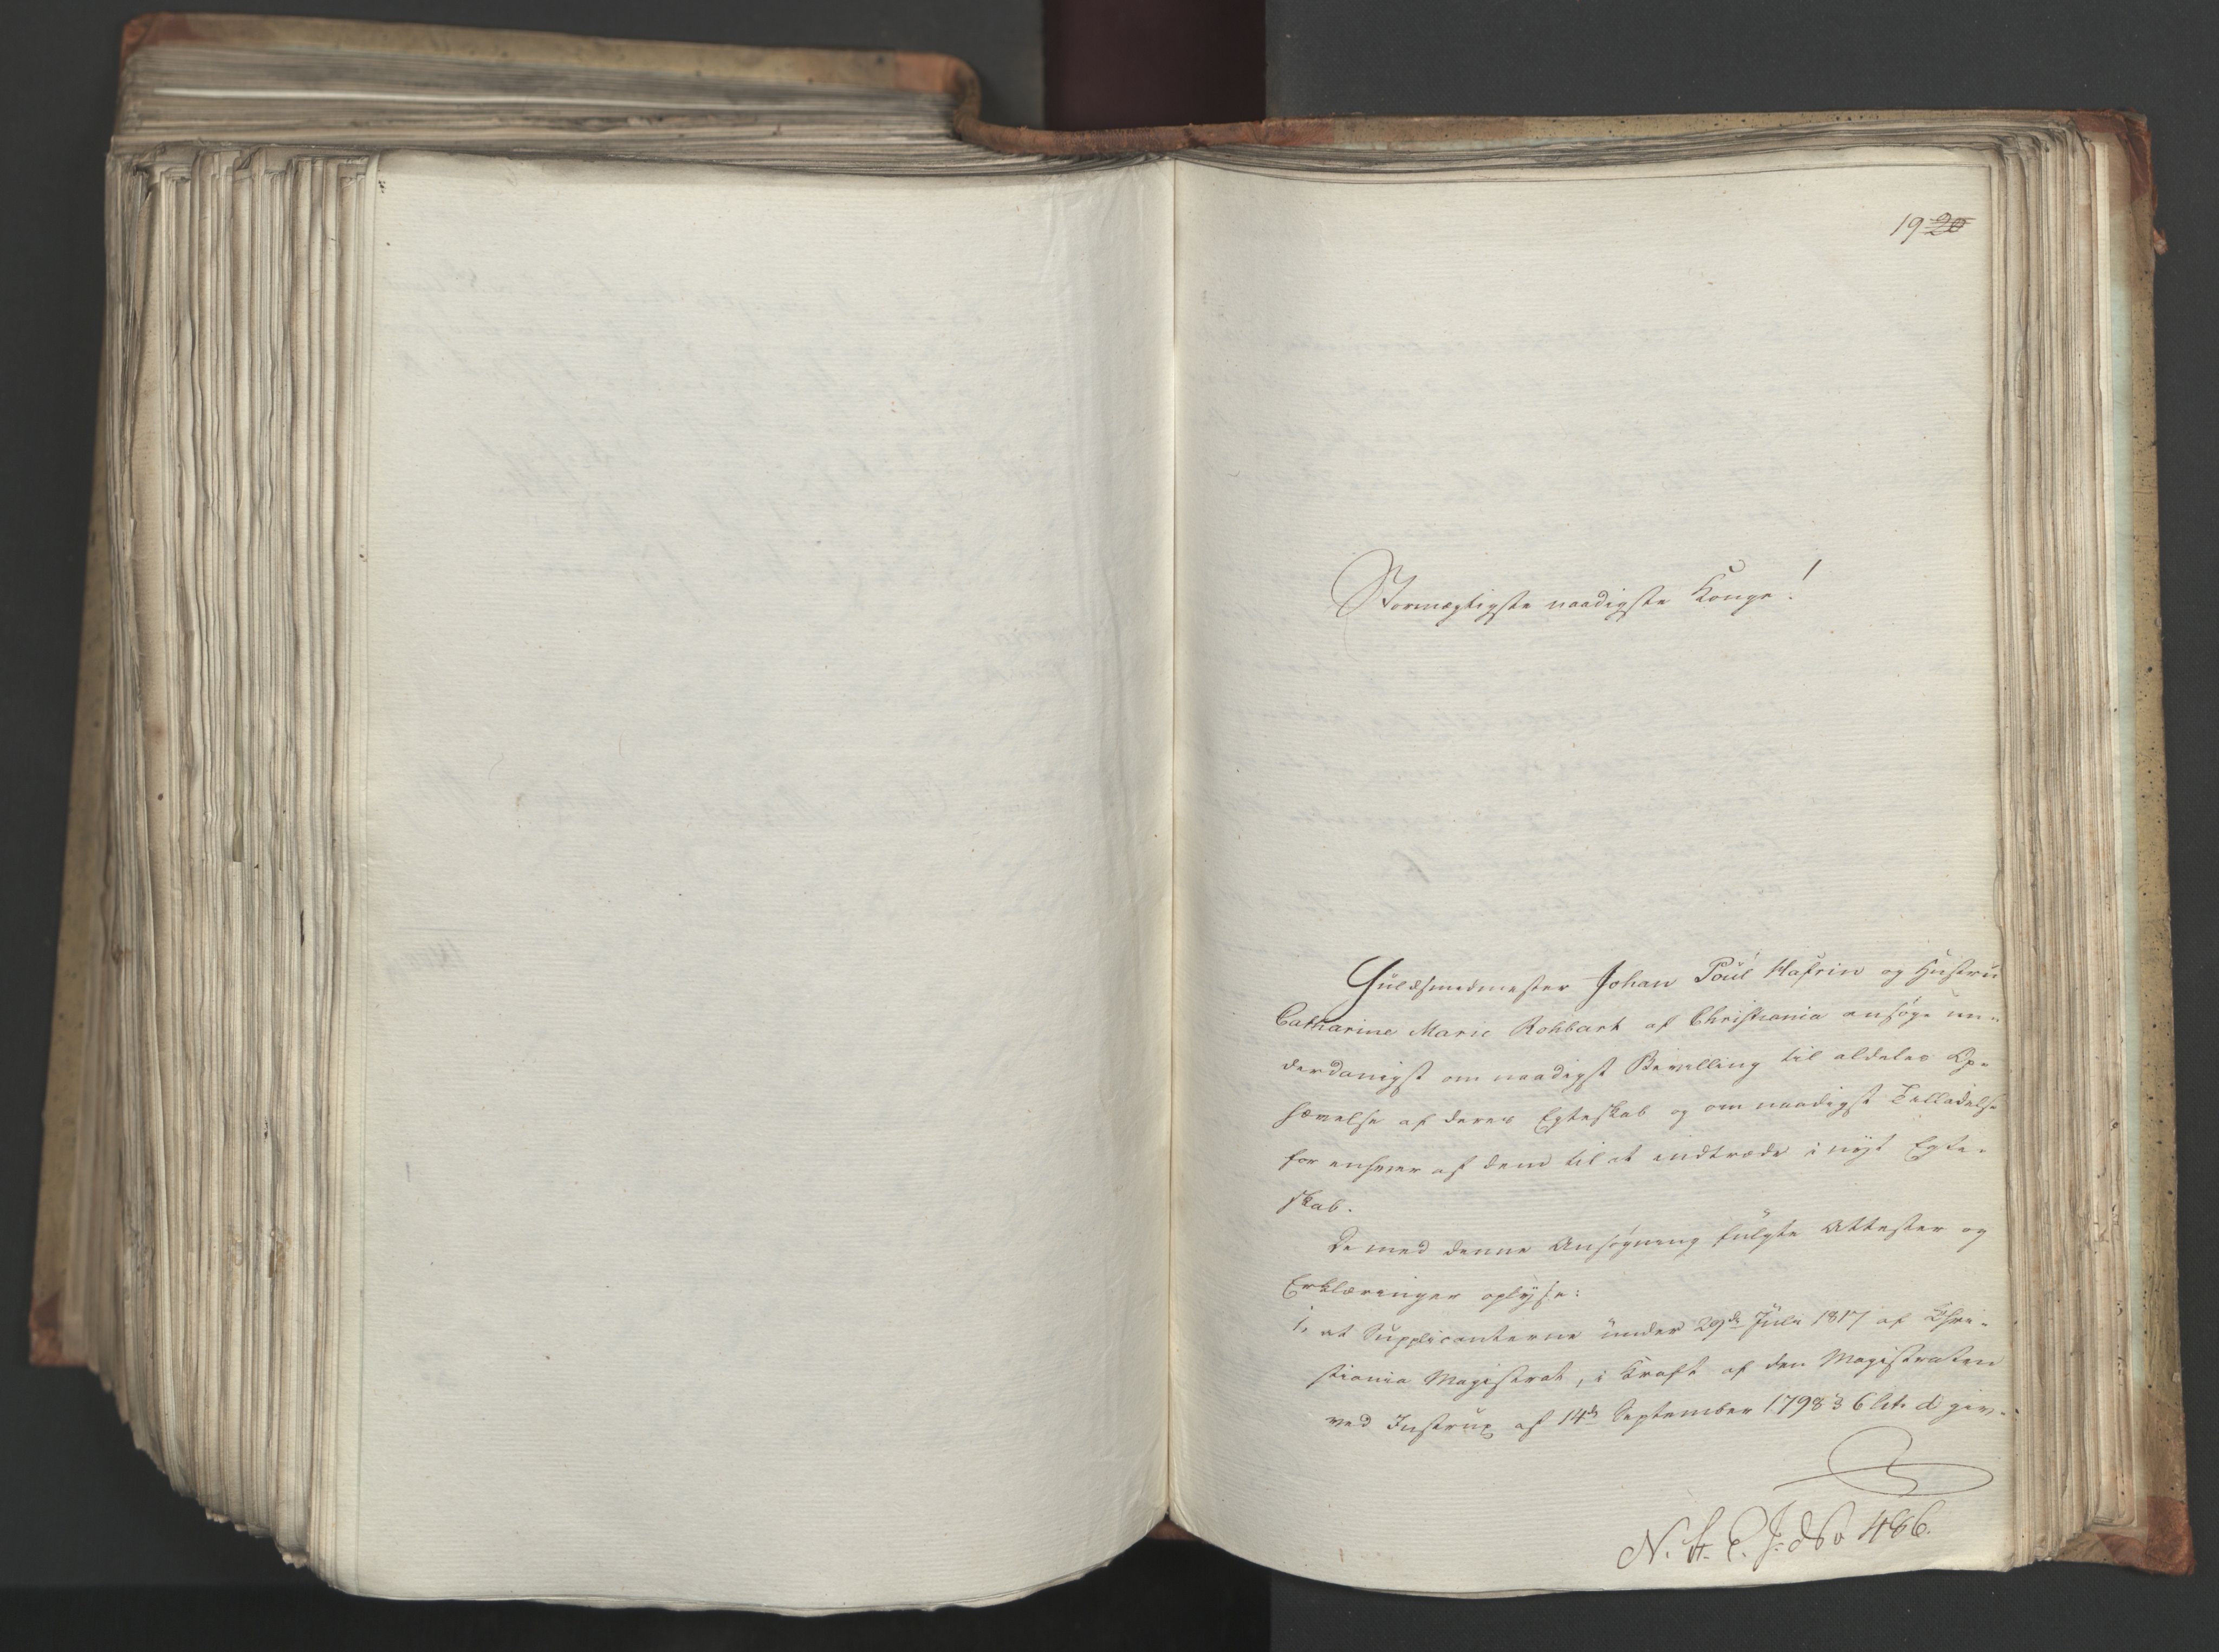 19 20
Stormægtigste naadigste Konge!
Guldsmedmester Johan Poul Hafrin og Hustru
Catharine Marie Rohbart af Christiania ansøge un-
derdanigst om naadigst Bevilling til aldeles Op-
hævelse af deres Egteskab og om naadigst Tilladelse
for enhver af dem til at indtræde i nyt Egte-
skab.
De med denne Ansøgning fulgte Attester og
Erklæringer oplyse:
1, at Supplicanterne under 29de Juli 1817 af Chri-
stiania Magistrat, i Kraft af den Magistraten
ved Instrux af 14de September 1798 § 6 lit. d giv-
N. 466.